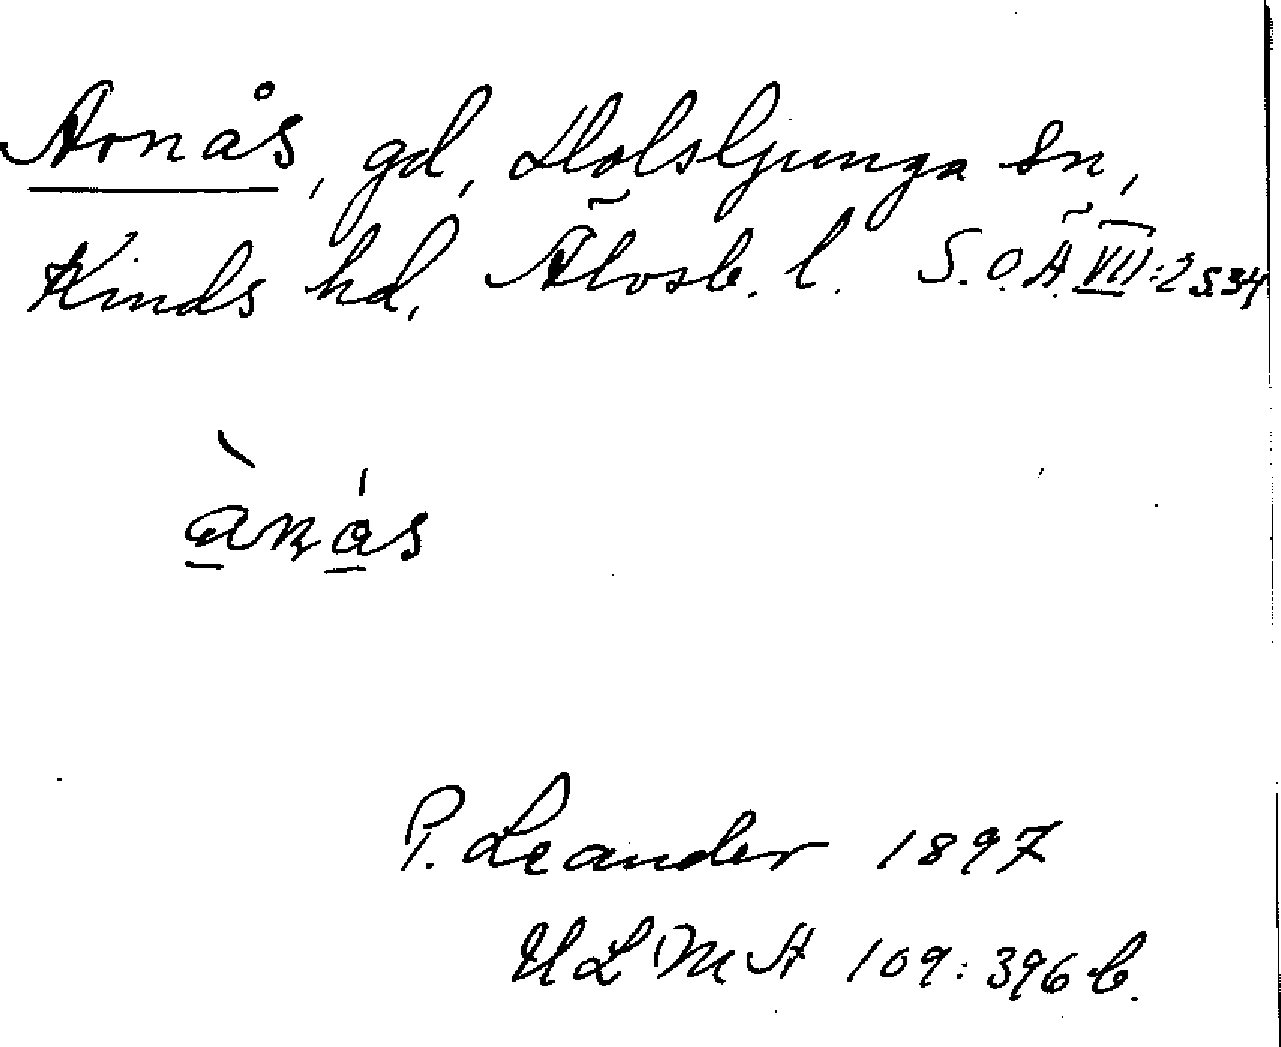 Arnås, gd, Holsljunga sn,
Kinds hd, Älvsb. l. S.O.Ä. VII:2 s.34
P. Leander 1897
ULMA 109:396 b.